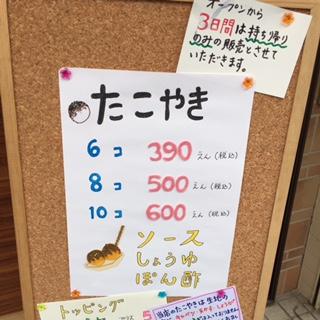 オープンから
3日間は持ち帰り
のみの販売とさせて
いただきます。
たこやき
6コ 390えん(税込)
8コ 500えん(税込)
10コ 600えん(税込)
ソース
しょうゆ
ぽん酢
トッピング
当店のたこやきは生地の